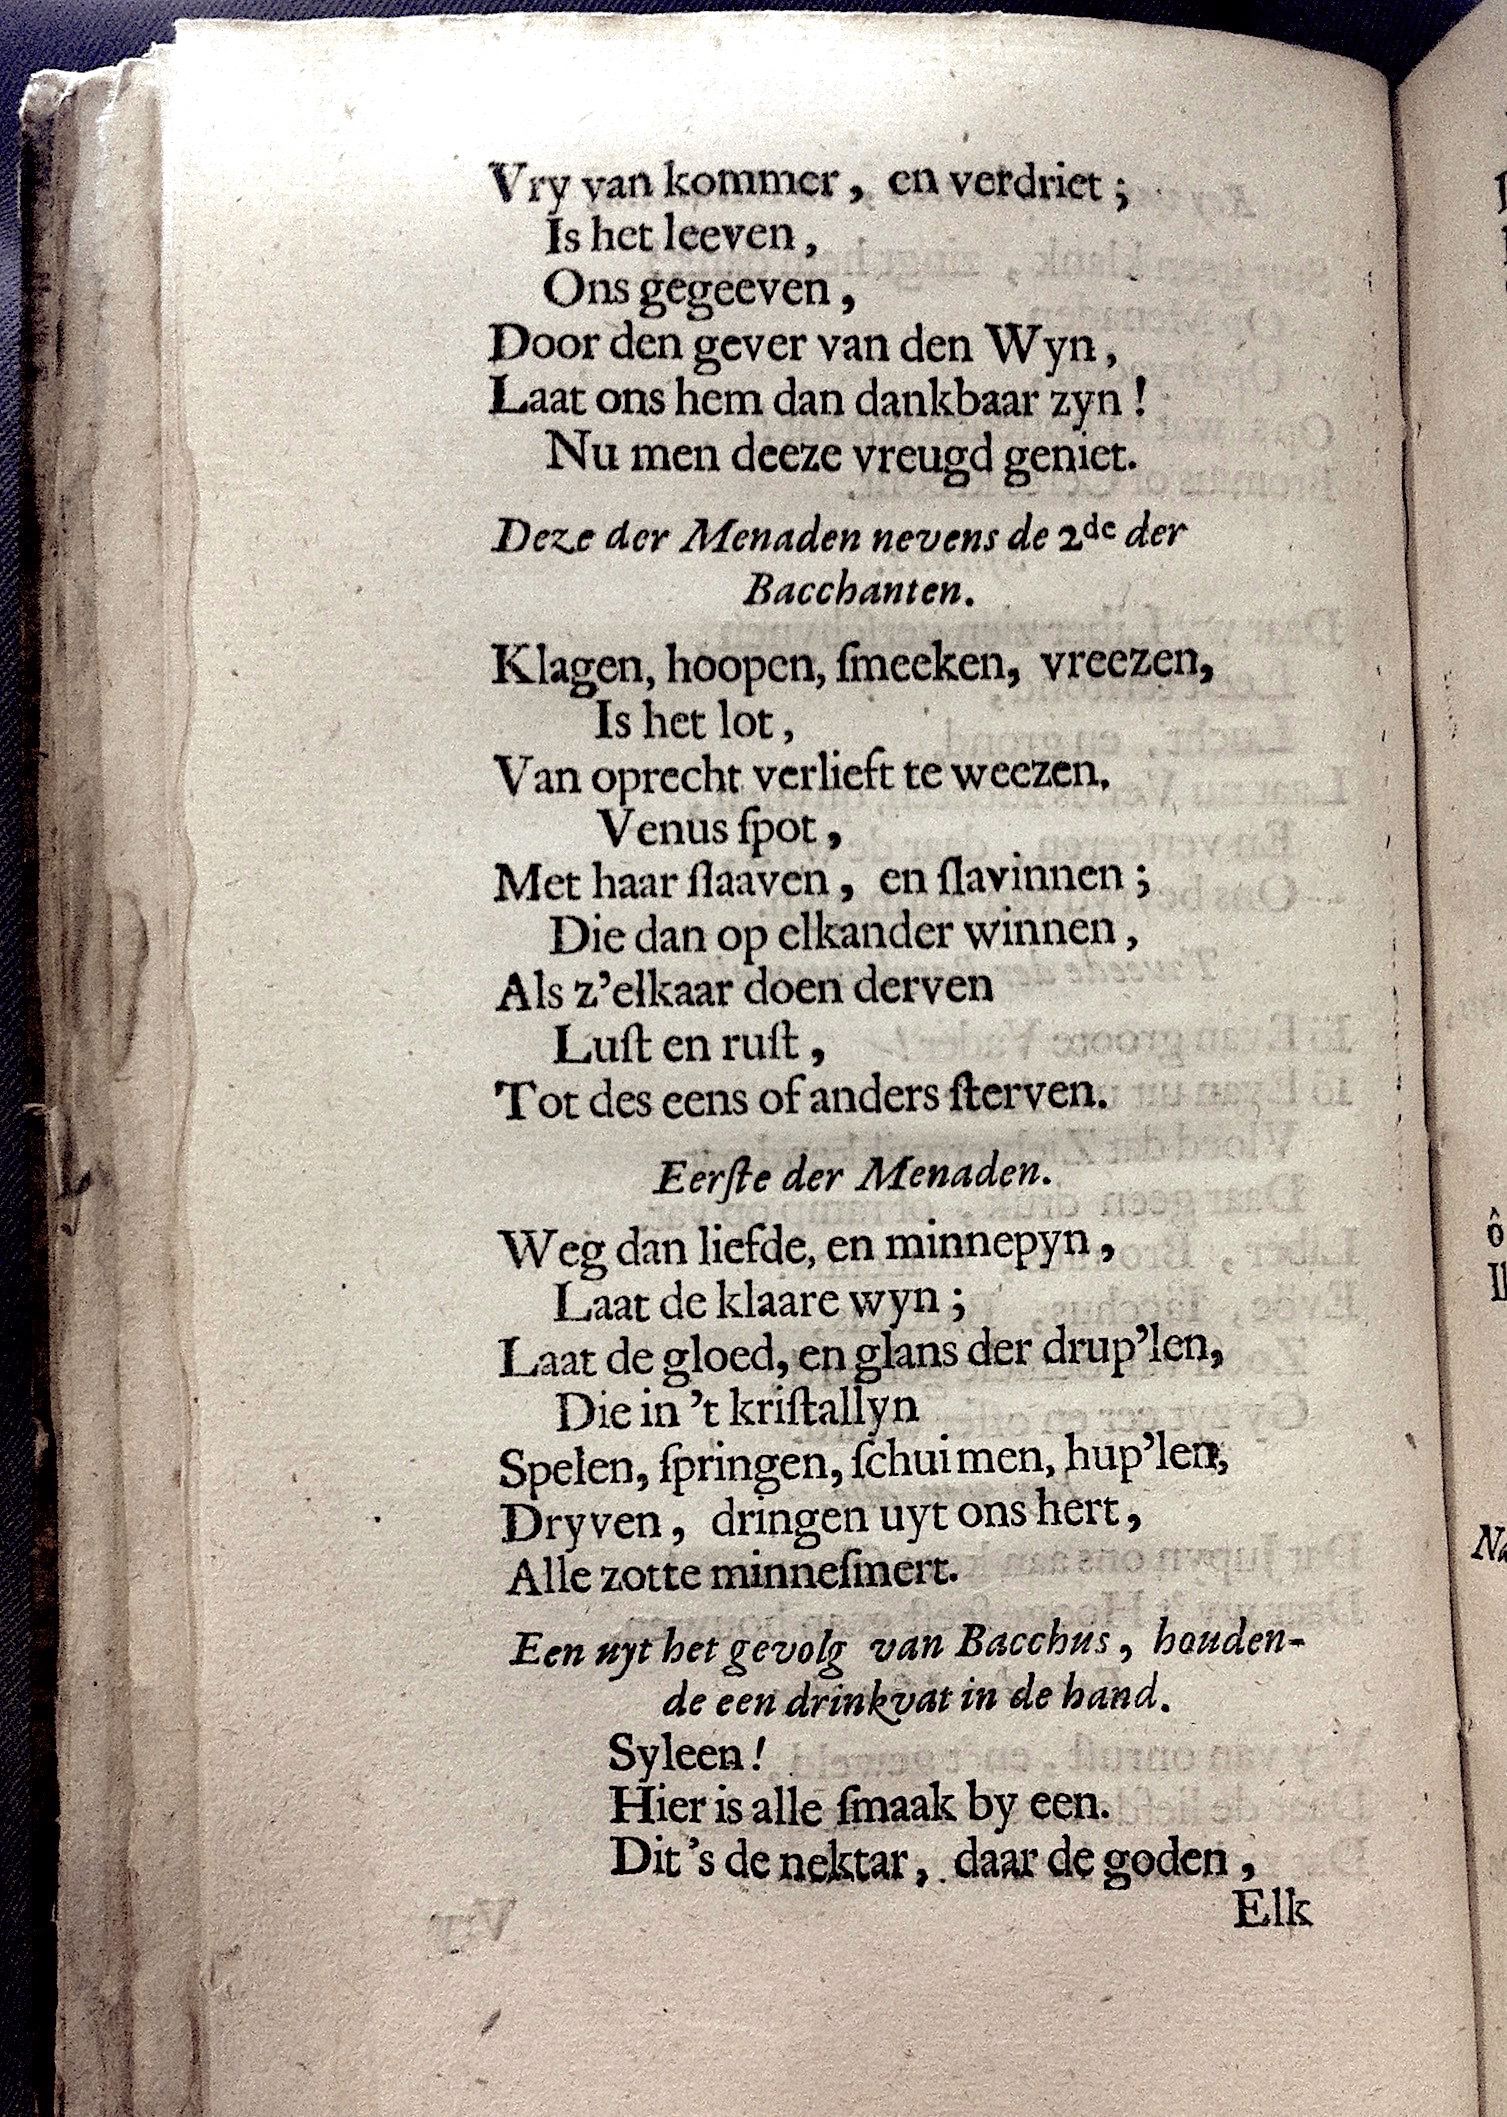 Vry van kommer, en verdriet;
Is het leeven,
Ons gegeeven,
Door den gever van den Wyn,
Laat ons hem dan dankbaar zyn!
Nu men deeze vreugd geniet.
Deze der Menaden nevens de 2de der
Bacchanten.
Klagen, hoopen, ſmeeken, vreezen,
Is het lot,
Van oprecht verlieft te weezen.
Venus ſpot,
Met haar ſlaaven, en ſlavinnen;
Die dan op elkander winnen,
Als z'elkaar doen derven
Luſt en ruſt,
Tot des eens of anders ſterven.
Eerſte der Menaden.
Weg dan liefde, en minnepyn,
Laat de klaare wyn;
Laat de gloed, en glans der drup'len,
Die in 't kriſtallyn
Spelen, ſpringen, ſchuimen, hup'len,
Dryven, dringen uyt ons hert,
Alle zotte minneſmert.
Een uyt het gevolg van Bacchus, houden-
de een drinkvat in de hand.
Syleen!
Hier is alle ſmaak by een.
Dit's de nektar, daar de goden,
Elk